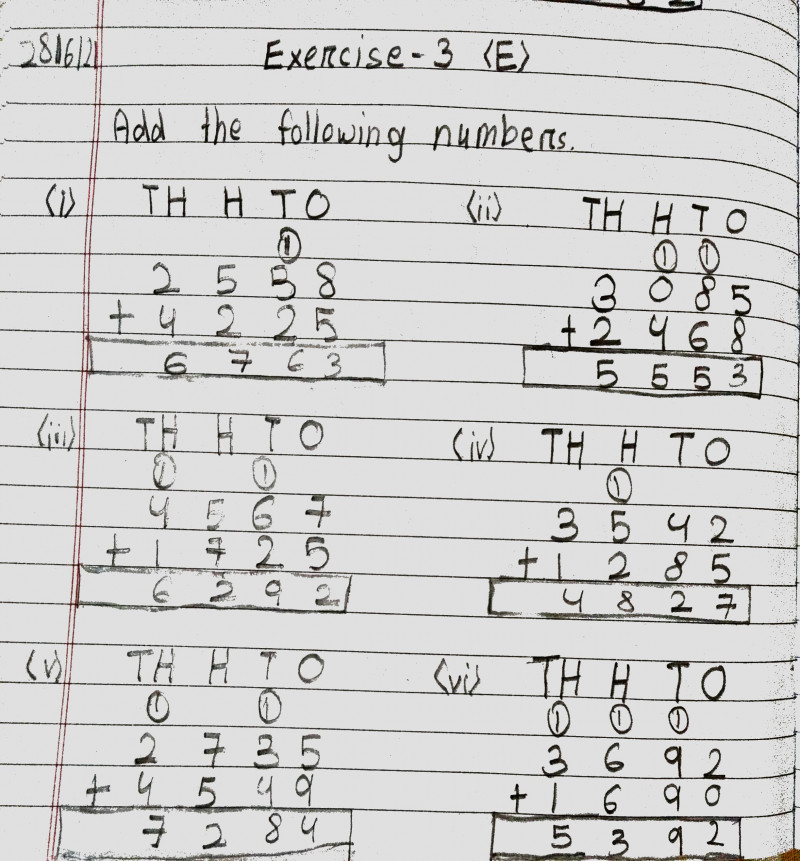 28/6/21 Exercise-3 (E)
Add the following numbers.
(i) TH H T O (ii) TH H T O
① ① ①
2 5 3 8 3 0 8 5
+ 4 2 2 5 + 2 4 6 8
6 7 6 3 5 5 5 3
(iii) TH H T O (iv) TH H T O
① ① ①
4 5 6 7 3 5 4 2
+ 1 7 2 5 + 1 2 8 5
6 2 9 2 4 8 2 7
(v) TH H T O (vi) TH H T O
① ① ① ① ①
2 7 3 5 3 6 9 2
+ 4 5 4 9 + 1 6 9 0
7 2 8 4 5 3 9 2